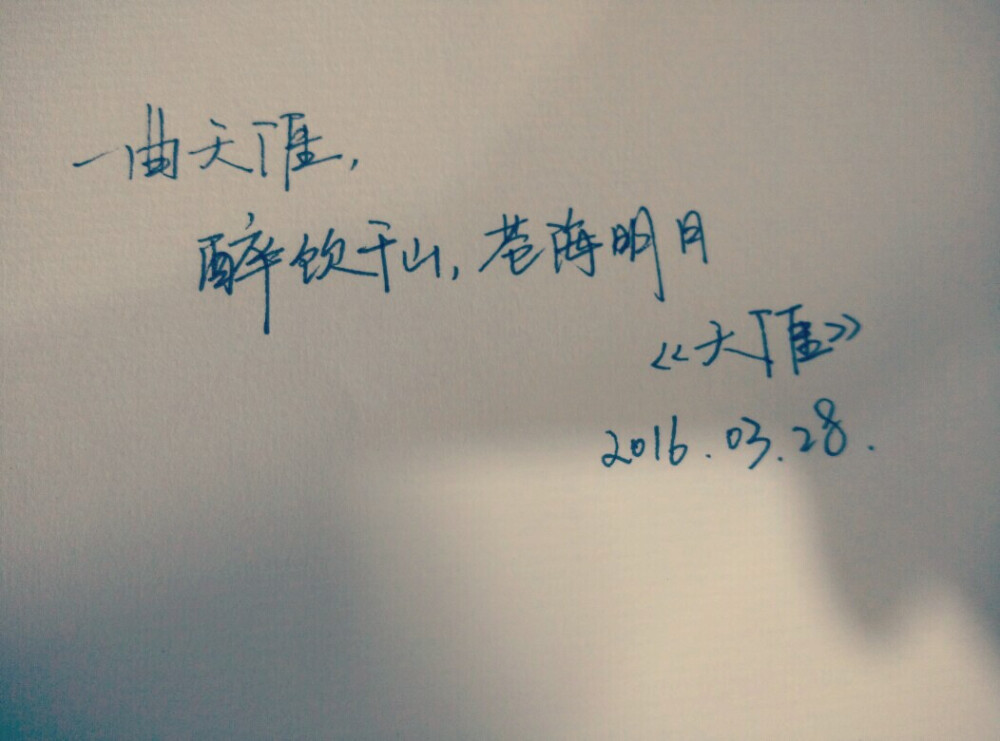 一曲天涯，
醉饮千山，苍海明月
《天涯》
2016.03.28.